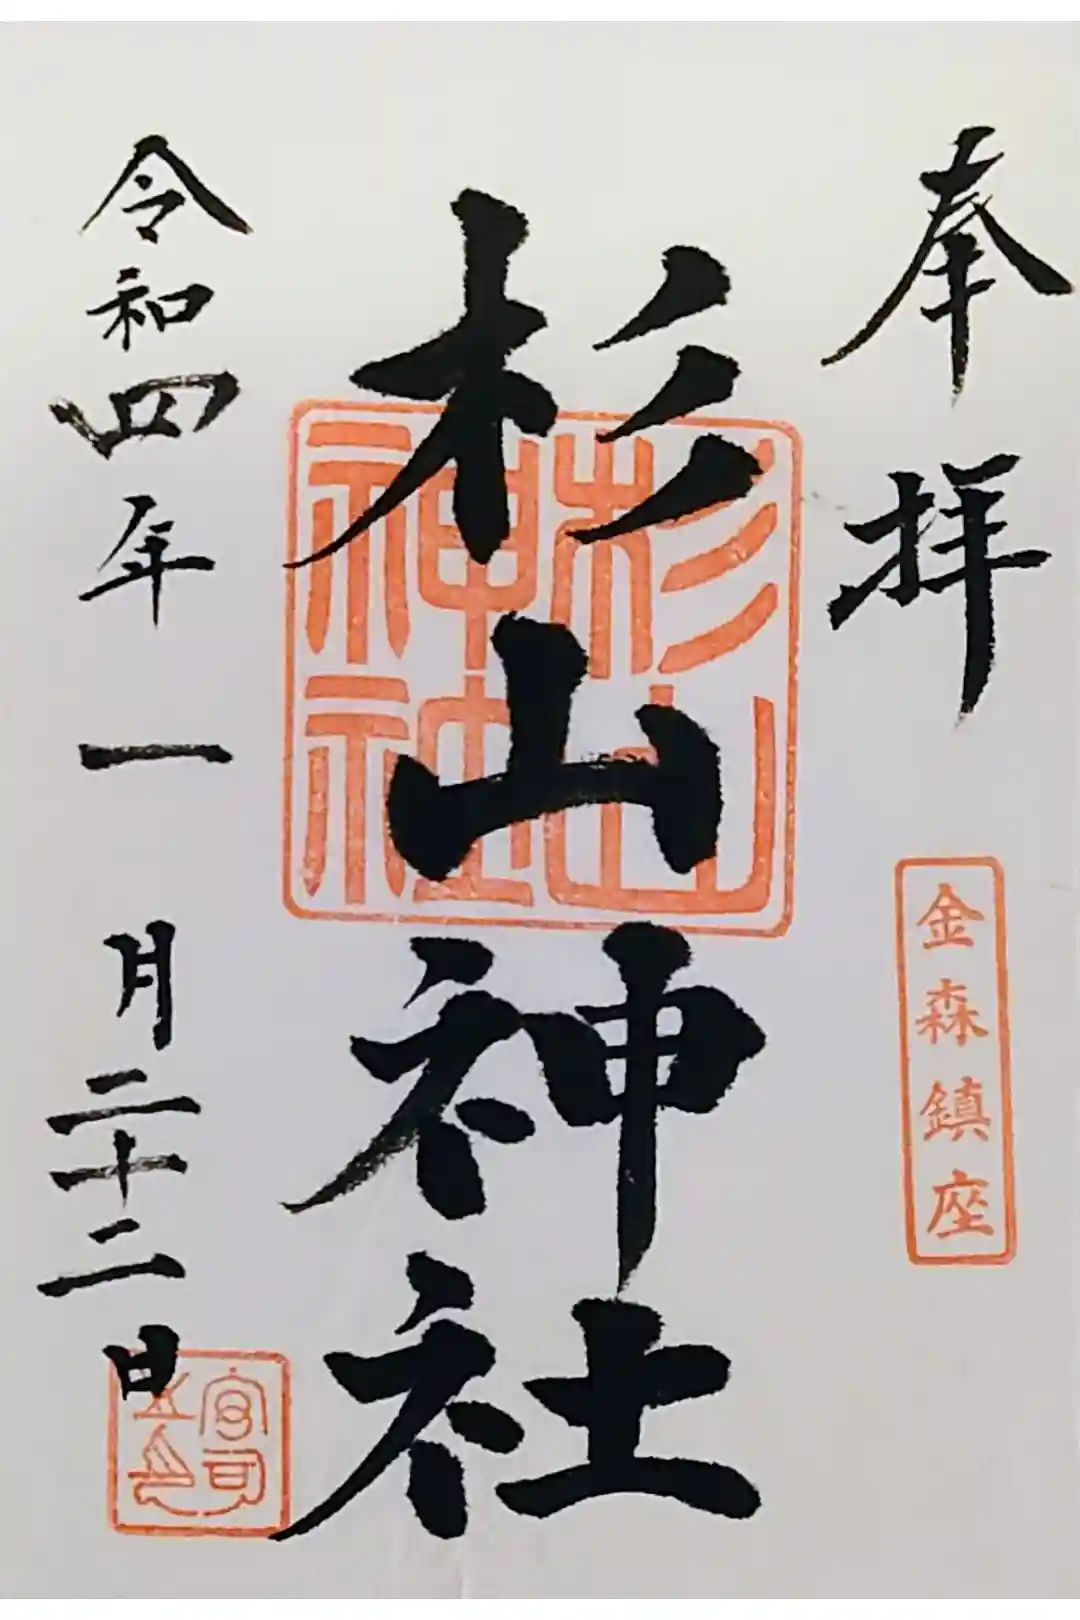 奉拝
金森鎮座
杉山神社
杉山
神社
令和四年一月二十二日
宮司